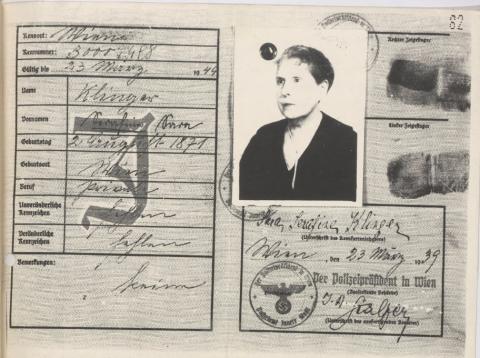 82
Kennort: Wien
Kennummer: 3000
Gültig bis 23 März 1944
Name Klinger
Vornamen Serafine Sara
Geburtstag 2. August 1871
Geburtsort Wien
Beruf Private
Unveränderliche Kennzeichen fehlen
Veränderliche Kennzeichen fehlen
Bemerkungen: keine
J
Rechter Zeigefinger
Linker Zeigefinger
Sara Serafine Klinger
(Unterschrift des Kennkarteninhabers)
Wien, den 23 März 1939
Der Polizeipräsident in Wien
(Ausstellende Behörde)
(Unterschrift des ausfertigenden Beamten)